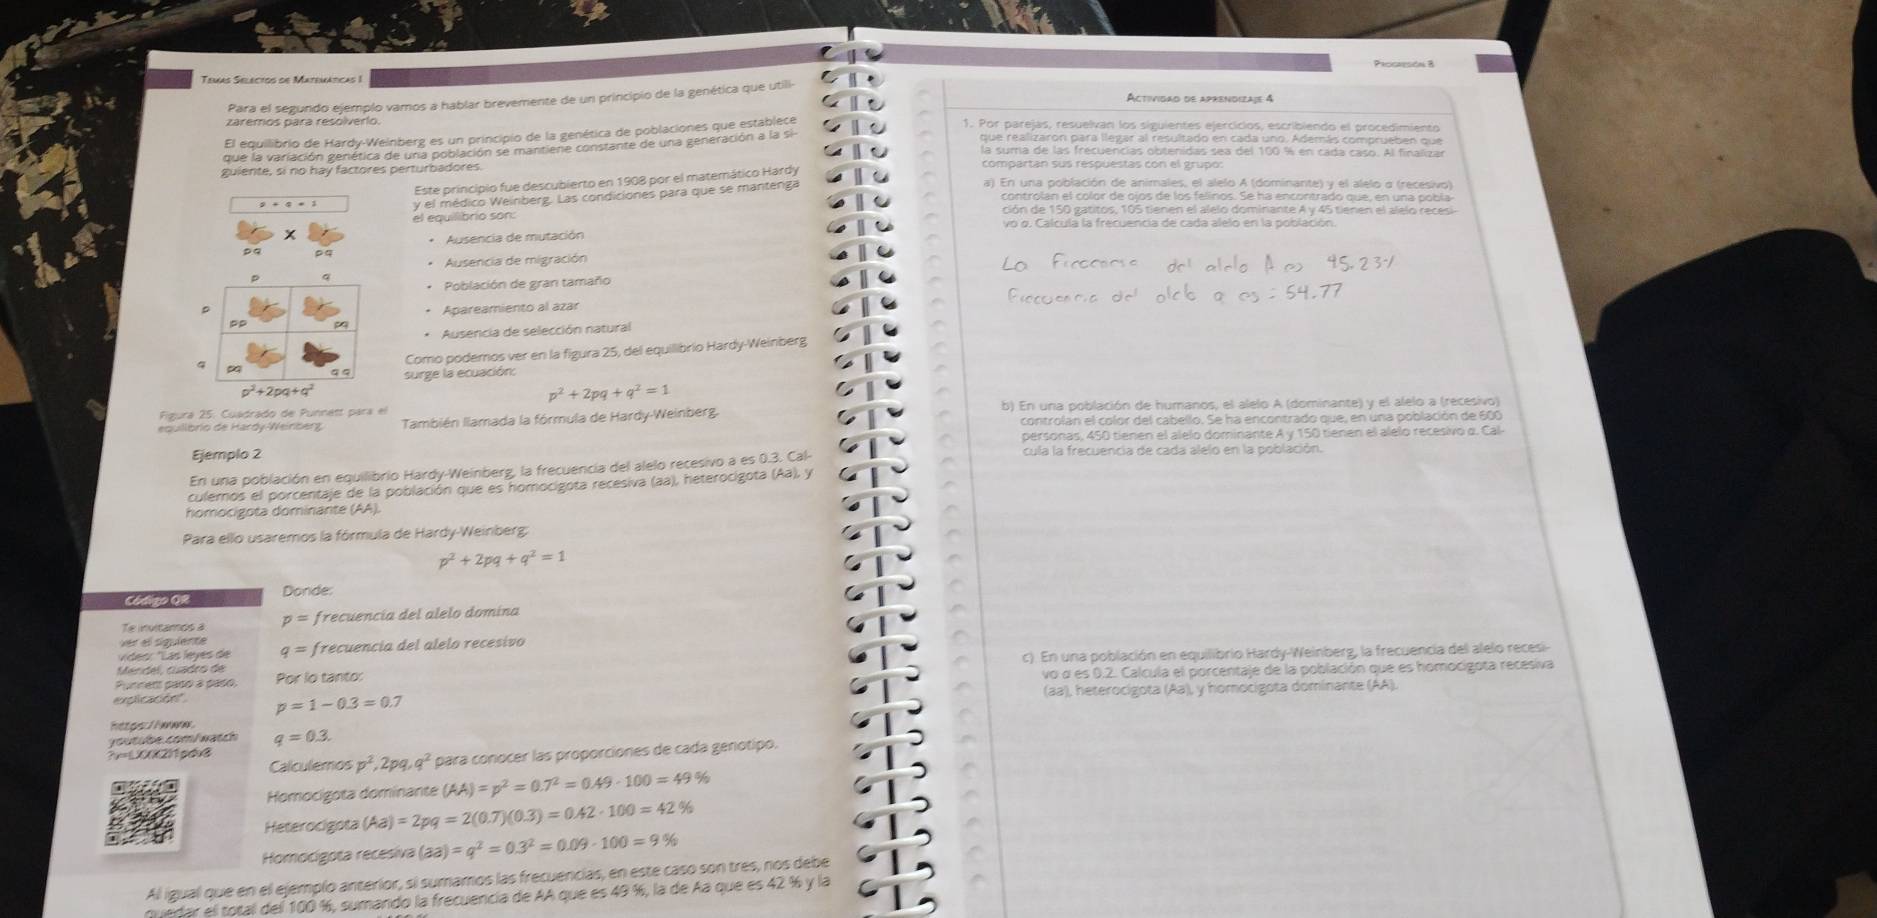 TEMAS SELECTOS DE MATEMÁTICAS I
Para el segundo ejemplo vamos a hablar brevemente de un principio de la genética que utili-
zaremos para resolverlo.
El equilibrio de Hardy-Weinberg es un principio de la genética de poblaciones que establece
que la variación genética de una población se mantiene constante de una generación a la si-
guiente, si no hay factores perturbadores.
p + q = 1
X
pq pq
p q
p
pp pq
q pq qq
p²+2pq+q²
Figura 25. Cuadrado de Punnett para el
equilibrio de Hardy-Weinberg.
Este principio fue descubierto en 1908 por el matemático Hardy
y el médico Weinberg. Las condiciones para que se mantenga
el equilibrio son:
• Ausencia de mutación
• Ausencia de migración
• Población de gran tamaño
• Apareamiento al azar
• Ausencia de selección natural
Como podemos ver en la figura 25, del equilibrio Hardy-Weinberg
surge la ecuación:
p² + 2pq + q² = 1
También llamada la fórmula de Hardy-Weinberg.
Ejemplo 2
En una población en equilibrio Hardy-Weinberg, la frecuencia del alelo recesivo a es 0.3. Cal-
culemos el porcentaje de la población que es homocigota recesiva (aa), heterocigota (Aa), y
homocigota dominante (AA).
Para ello usaremos la fórmula de Hardy-Weinberg:
p² + 2pq + q² = 1
Donde:
p = frecuencia del alelo domina
q = frecuencia del alelo recesivo
Por lo tanto:
p = 1 − 0.3 = 0.7
q = 0.3.
Calculemos p², 2pq, q² para conocer las proporciones de cada genotipo.
Homocigota dominante (AA) = p² = 0.7² = 0.49 · 100 = 49 %
Heterocigota (Aa) = 2pq = 2(0.7)(0.3) = 0.42 · 100 = 42 %
Homocigota recesiva (aa) = q² = 0.3² = 0.09 · 100 = 9 %
Al igual que en el ejemplo anterior, si sumamos las frecuencias, en este caso son tres, nos debe
quedar el total del 100 %, sumando la frecuencia de AA que es 49 %, la de Aa que es 42 % y la
Código QR
Te invitamos a
ver el siguiente
video: "Las leyes de
Mendel, cuadro de
Punnett paso a paso,
explicación".
https://www.
youtube.com/watch
PROGRESIÓN 8
ACTIVIDAD DE APRENDIZAJE 4
1. Por parejas, resuelvan los siguientes ejercicios, escribiendo el procedimiento
que realizaron para llegar al resultado en cada uno. Además comprueben que
la suma de las frecuencias obtenidas sea del 100 % en cada caso. Al finalizar
compartan sus respuestas con el grupo:
a) En una población de animales, el alelo A (dominante) y el alelo α (recesivo)
controlan el color de ojos de los felinos. Se ha encontrado que, en una pobla-
ción de 150 gatitos, 105 tienen el alelo dominante A y 45 tienen el alelo recesi-
vo α. Calcula la frecuencia de cada alelo en la población.
La del alelo A es 45.23%
del a es = 54.77
b) En una población de humanos, el alelo A (dominante) y el alelo a (recesivo)
controlan el color del cabello. Se ha encontrado que, en una población de 600
personas, 450 tienen el alelo dominante A y 150 tienen el alelo recesivo α. Cal-
cula la frecuencia de cada alelo en la población.
c) En una población en equilibrio Hardy-Weinberg, la frecuencia del alelo recesi-
vo α es 0.2. Calcula el porcentaje de la población que es homocigota recesiva
(aa), heterocigota (Aa), y homocigota dominante (AA).